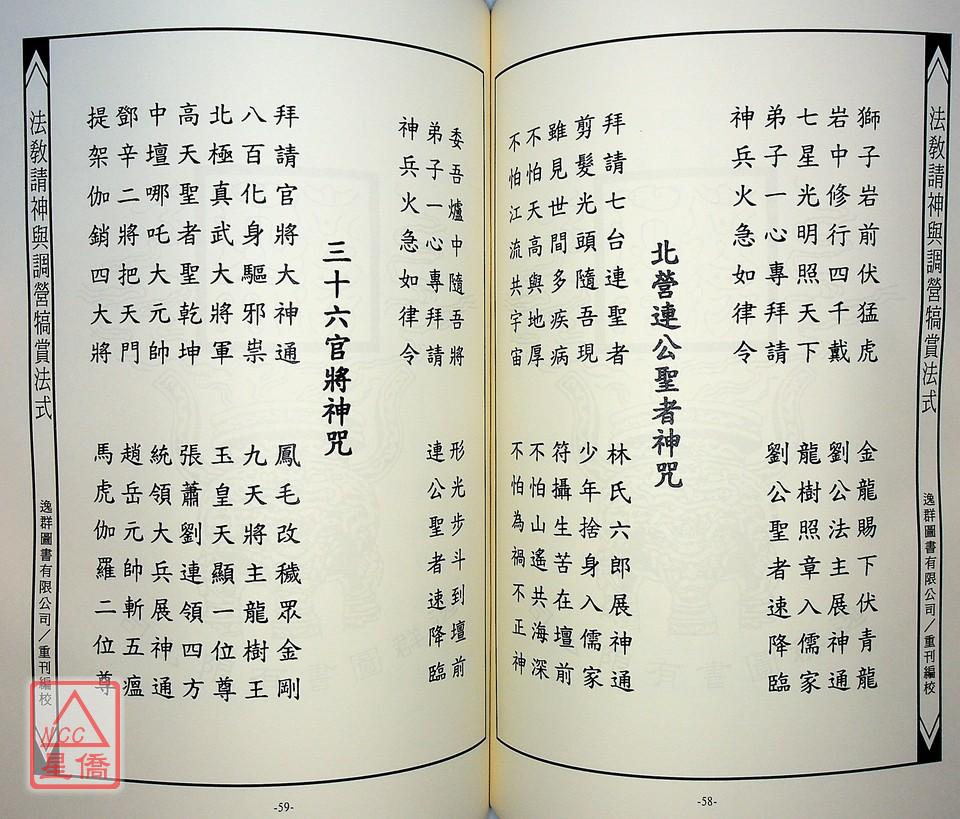 法教請神與調營犒賞法式
逸群圖書有限公司/重刊編校
獅子岩前伏猛虎 金龍賜下伏青龍
岩中修行四千戴 劉公法主展神通
七星光明照天下 龍樹照章入儒家
弟子一心專拜請 劉公聖者速降臨
神兵火急如律令
北營連公聖者神咒
拜請七台連聖者 林氏六郎展神通
剪髮光頭隨吾現 少年捨身入儒家
雖見世間多疾病 符攝生苦在壇前
不怕天高與地厚 不怕山遙共海深
不怕江流共宇宙 不怕為禍不正神
-58-
委吾爐中隨吾將 形光步斗到壇前
弟子一心專拜請 連公聖者速降臨
神兵火急如律令
三十六官將神咒
拜請官將大神通 鳳毛改穢眾金剛
八百化身驅邪祟 九天將主龍樹王
北極真武大將軍 玉皇天顯一位尊
高天聖者聖乾坤 張蕭劉連領四方
中壇哪吒大元帥 統領大兵展神通
鄧辛二將把天門 趙岳元帥斬五瘟
提架伽銷四大將 馬虎伽羅二位尊
法教請神與調營犒賞法式
逸群圖書有限公司/重刊編校
-59-
NCC
星僑